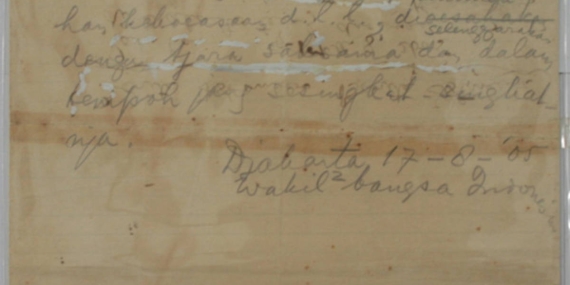 kan kekoeasaan d.l.l., dioesahakan
selenggarakan
dengan tjara seksama dan dalam
tempoh jang sesingkat-singkat-
nja.
Djakarta 17 - 8 - '05
Wakil2 bangsa Indonesia